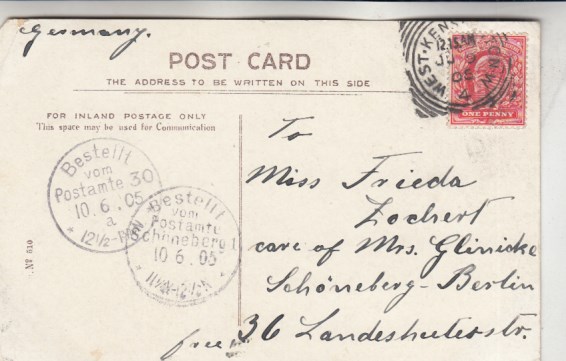 Germany.
POST CARD
THE ADDRESS TO BE WRITTEN ON THIS SIDE
FOR INLAND POSTAGE ONLY
This space may be used for Communication
WEST-KENS
12.15AM
05
ONE PENNY
Bestellt
vom
Postamte 30
10.6.05
a
12½-
Bestellt
vom
Postamte
Schöneberg 1
10 6.05
To
Miss Frieda
Zochert
care of Mrs. Glinicke
Schöneberg-Berlin
36 Landshuterstr.
free
Nº 810